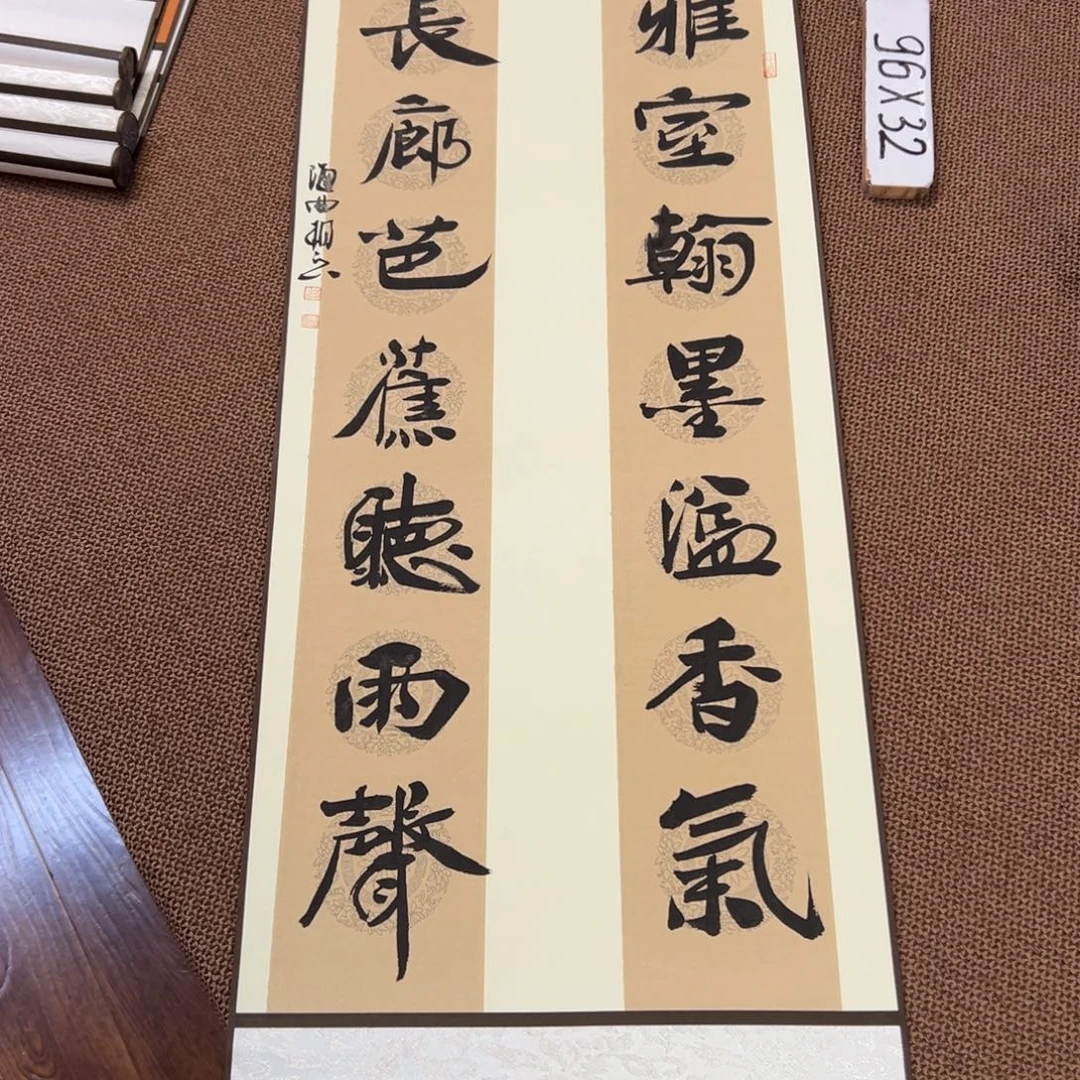 雅室翰墨溢香氣
長廊芭蕉聽雨聲
96X32